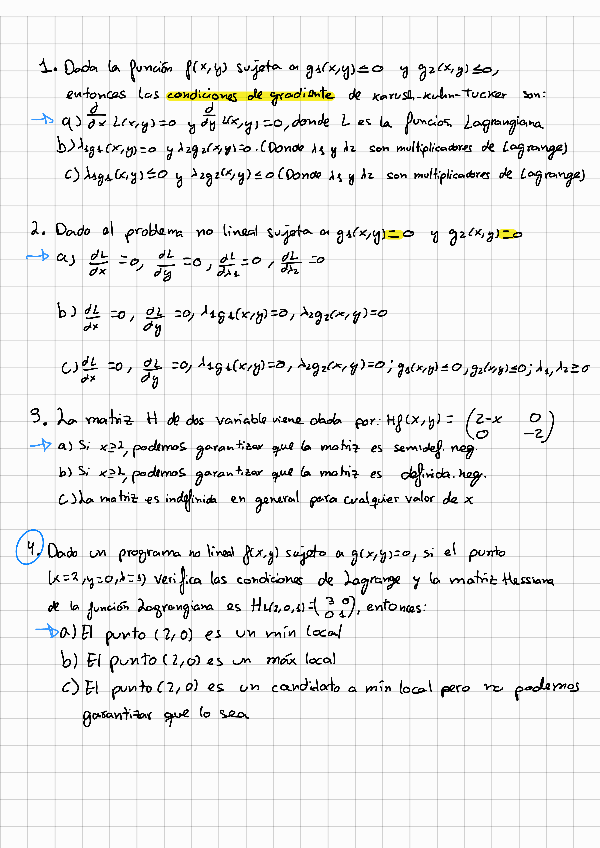 1. Dada la función f(x,y) sujeta a g1(x,y)≤0 y g2(x,y)≤0,
entonces las condiciones de gradiente de Karush-Kuhn-Tucker son:
→ a) d/dx L(x,y)=0 y d/dy L(x,y)=0, donde L es la función Lagrangiana
b) λ1g1(x,y)=0 y λ2g2(x,y)=0. (Donde λ1 y λ2 son multiplicadores de Lagrange)
c) λ1g1(x,y)≤0 y λ2g2(x,y)≤0 (Donde λ1 y λ2 son multiplicadores de Lagrange)
2. Dado el problema no lineal sujeta a g1(x,y)=0 y g2(x,y)=0
→ a) dL/dx =0, dL/dy =0, dL/dλ1 =0, dL/dλ2 =0
b) dL/dx =0, dL/dy =0, λ1g1(x,y)=0, λ2g2(x,y)=0
c) dL/dx =0, dL/dy =0, λ1g1(x,y)=0, λ2g2(x,y)=0; g1(x,y)≤0, g2(x,y)≤0; λ1, λ2≥0
3. La matriz H de dos variable viene dada por: Hf(x,y) = (2-x 0
0 -2)
→ a) Si x≥2, podemos garantizar que la matriz es semidef. neg.
b) Si x≥2, podemos garantizar que la matriz es definida. neg.
c) La matriz es indefinida en general para cualquier valor de x
4. Dado un programa no lineal f(x,y) sujeto a g(x,y)=0, si el punto
(x=2, y=0, λ=1) verifica las condiciones de Lagrange y la matriz Hessiana
de la función Lagrangiana es HL(2,0,1)=(3 0
0 1), entonces:
→ a) El punto (2,0) es un mín local
b) El punto (2,0) es un máx local
c) El punto (2,0) es un candidato a mín local pero no podemos
garantizar que lo sea